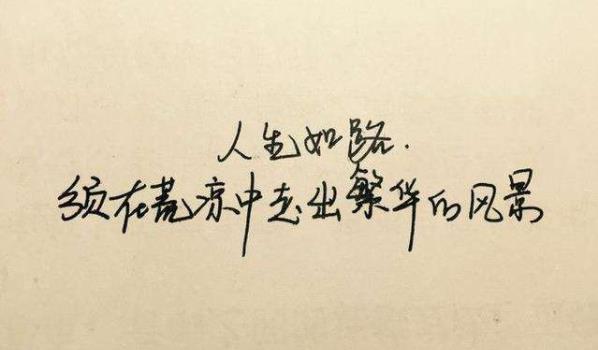 人生如路.
须在荒凉中走出繁华的风景